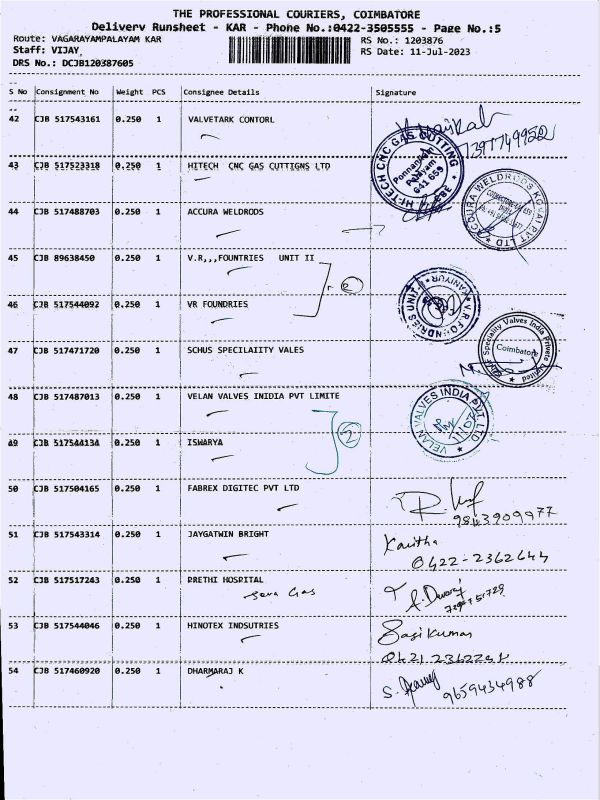 THE PROFESSIONAL COURIERS, COIMBATORE
Delivery Runsheet - KAR - Phone No.:0422-3505555 - Page No.:5
Route: VAGARAYAMPALAYAM KAR
RS No.: 1203876
Staff: VIJAY,
RS Date: 11-Jul-2023
DRS No.: DCJB120387605
S No Consignment No Weight PCS Consignee Details Signature
42 CJB 517543161 0.250 1 VALVETARK CONTORL
43 CJB 517523318 0.250 1 HITECH CNC GAS CUTTIGNS LTD
HI-TECH CNC GAS CUTTING
Ponnandam
Palayam
641 659
44 CJB 517488703 0.250 1 ACCURA WELDRODS
45 CJB 89638450 0.250 1 V.R,,,FOUNTRIES UNIT II
2
V.R. FOUNDRIES UNIT
46 CJB 517544092 0.250 1 VR FOUNDRIES
47 CJB 517471720 0.250 1 SCHUS SPECILAIITY VALES
Speciality Valves India Private Limited
Coimbatore
48 CJB 517487013 0.250 1 VELAN VALVES INIDIA PVT LIMITE
VELAN VALVES INDIA PVT. LTD
2
49 CJB 517544134 0.250 1 ISWARYA
50 CJB 517504165 0.250 1 FABREX DIGITEC PVT LTD
9843909977
51 CJB 517543314 0.250 1 JAYGATWIN BRIGHT
Kavitha
0422-2362644
52 CJB 517517243 0.250 1 PRETHI HOSPITAL
Gas
53 CJB 517544046 0.250 1 HINOTEX INDSUTRIES
Sasikumar
54 CJB 517460920 0.250 1 DHARMARAJ K
9659434988